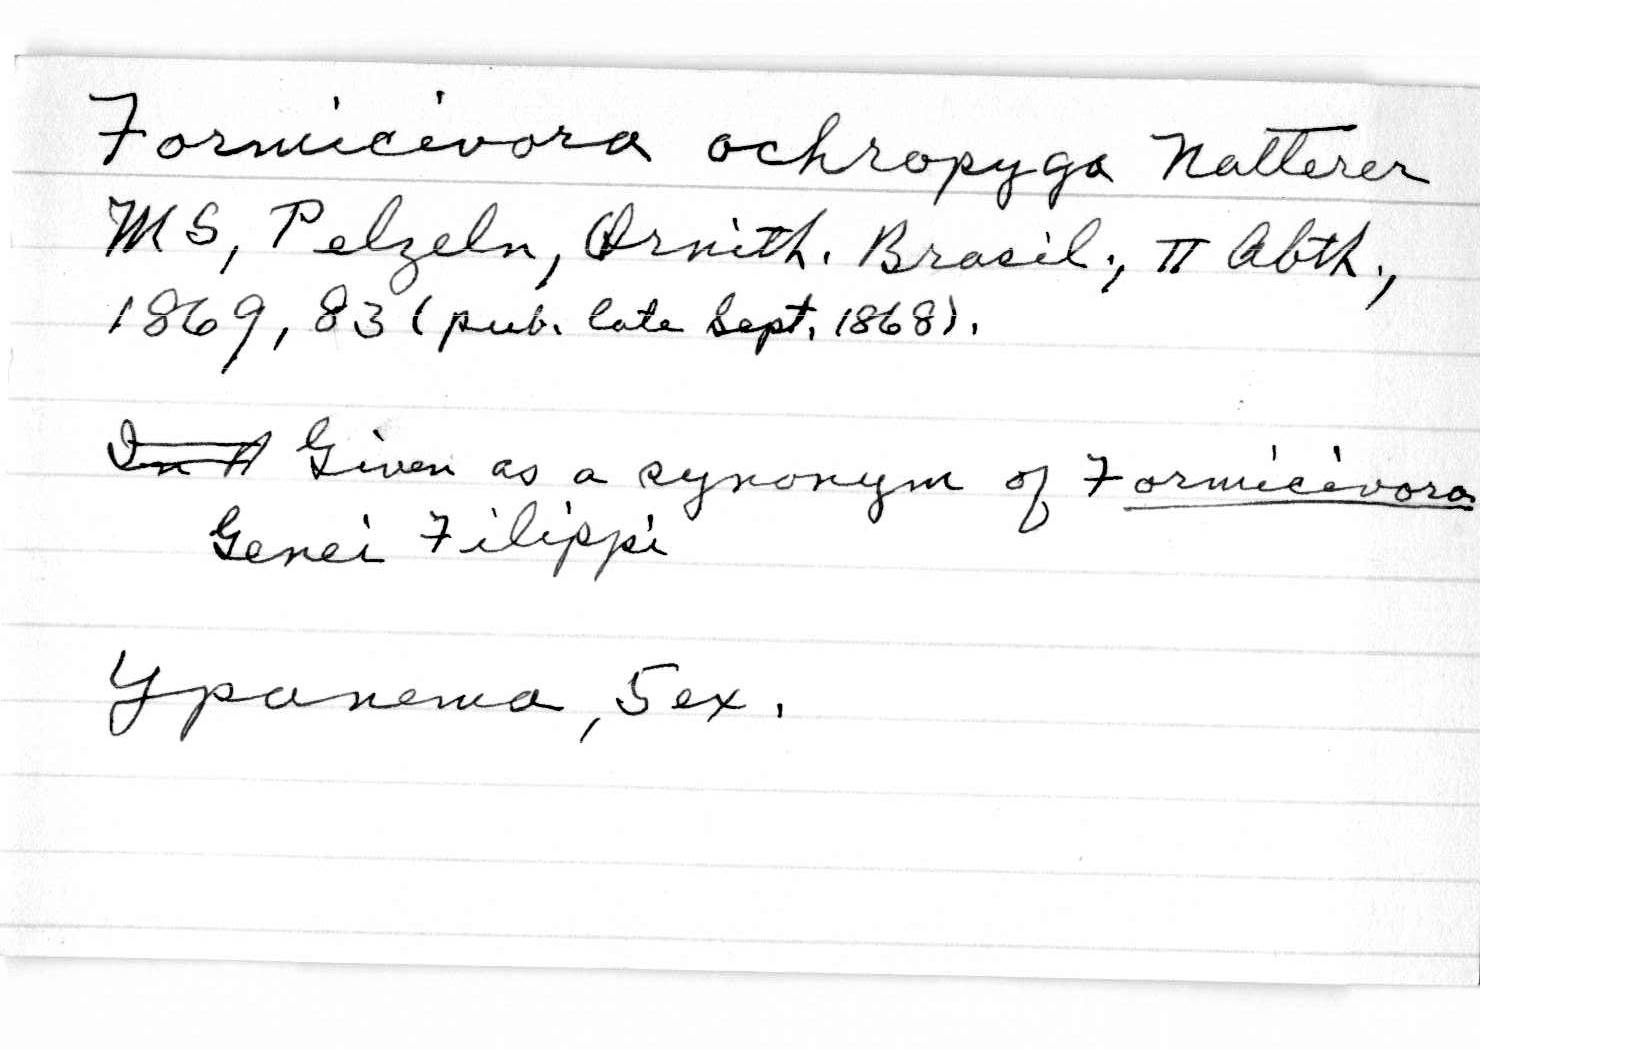 Formicivora ochropyga Natterer
MS, Pelzeln, Ornith. Brasil., II Abth.,
1869, 83 (pub. late Sept. 1868).
Given as a synonym of Formicivora
Genei Filippi
Ypanema, 5 ex.